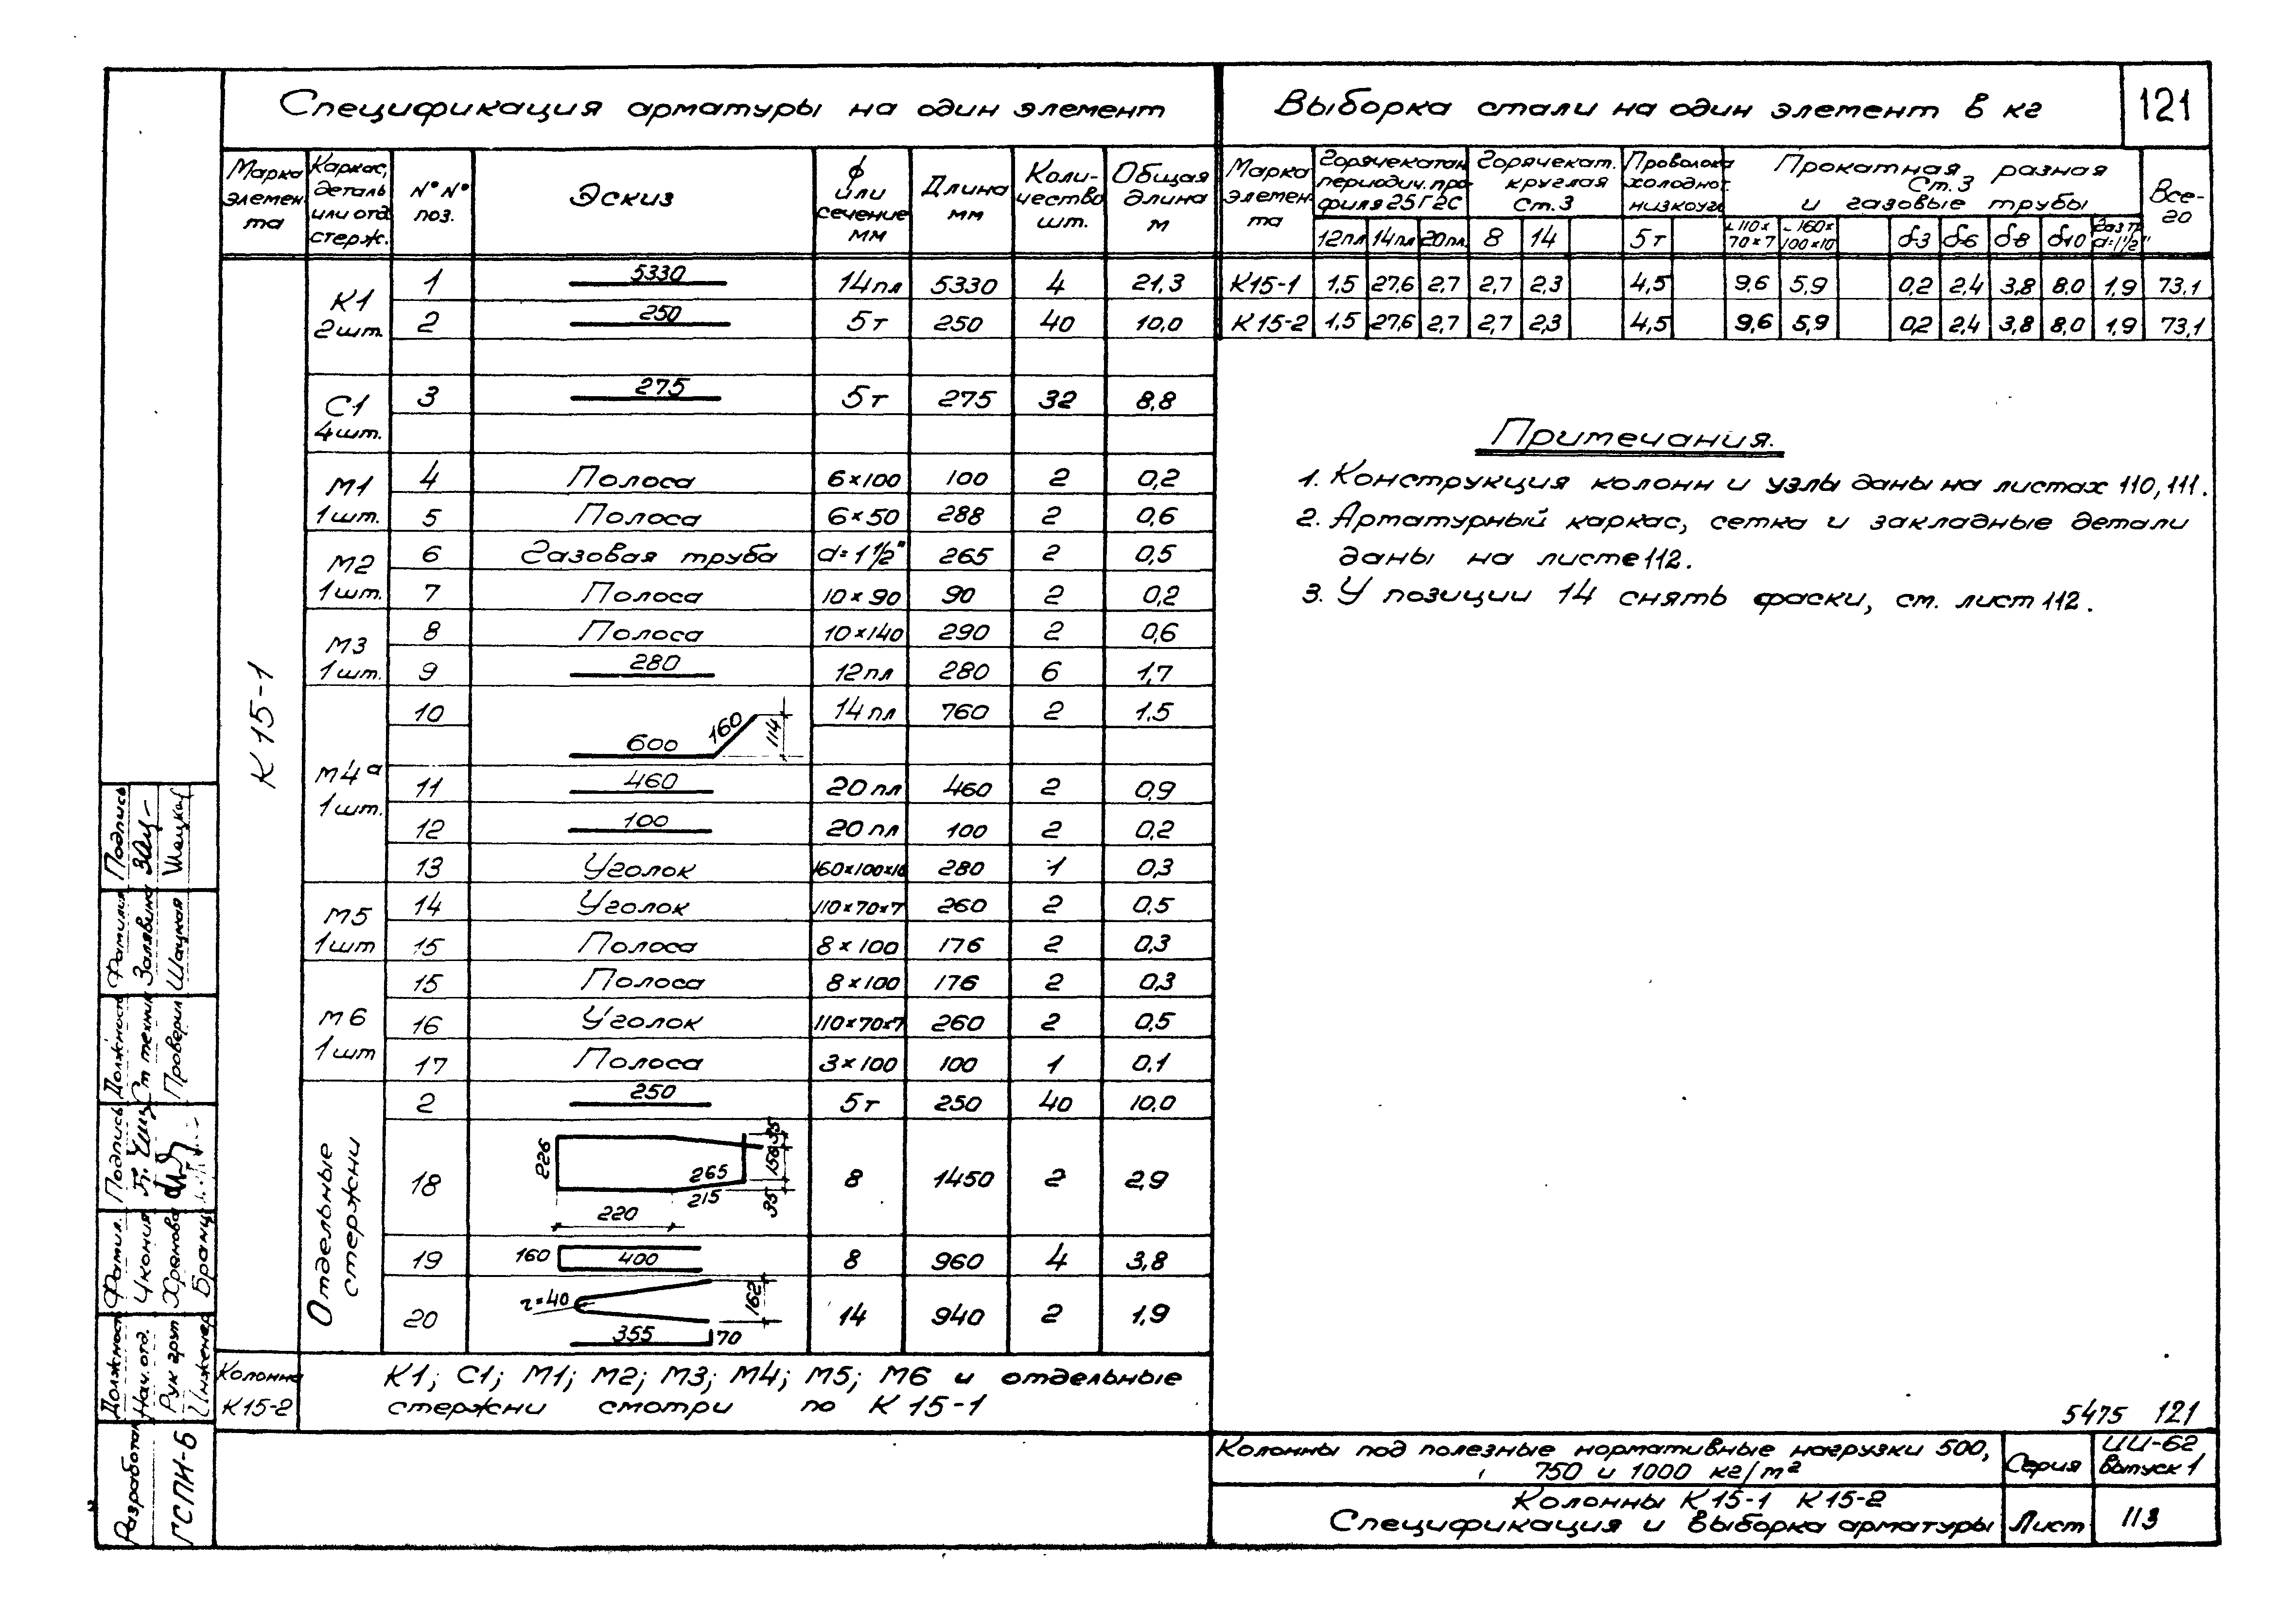 Спецификация арматуры на один элемент
Марка элемен-та | Каркас, деталь или отд. стерж. | №№ поз. | Эскиз | ф или сечение мм | Длина мм | Коли-чество шт. | Общая длина м
К15-1
К1 2шт. | 1 | 5330 | 14пл | 5330 | 4 | 21,3
2 | 250 | 5т | 250 | 40 | 10,0
С1 4шт. | 3 | 275 | 5т | 275 | 32 | 8,8
М1 1шт. | 4 | Полоса | 6×100 | 100 | 2 | 0,2
5 | Полоса | 6×50 | 288 | 2 | 0,6
М2 1шт. | 6 | Газовая труба | d=1½" | 265 | 2 | 0,5
7 | Полоса | 10×90 | 90 | 2 | 0,2
М3 1шт. | 8 | Полоса | 10×140 | 290 | 2 | 0,6
9 | 280 | 12пл | 280 | 6 | 1,7
М4а 1шт. | 10 | 600 160 114 | 14пл | 760 | 2 | 1.5
11 | 460 | 20пл | 460 | 2 | 0,9
12 | 100 | 20пл | 100 | 2 | 0,2
13 | Уголок | 160×100×10 | 280 | 1 | 0,3
М5 1шт | 14 | Уголок | 110×70×7 | 260 | 2 | 0,5
15 | Полоса | 8×100 | 176 | 2 | 0,3
М6 1шт | 15 | Полоса | 8×100 | 176 | 2 | 0,3
16 | Уголок | 110×70×7 | 260 | 2 | 0,5
17 | Полоса | 3×100 | 100 | 1 | 0.1
Отдельные стержни | 2 | 250 | 5т | 250 | 40 | 10.0
18 | 226 265 215 220 35 156 35 | 8 | 1450 | 2 | 2,9
19 | 160 400 | 8 | 960 | 4 | 3,8
20 | r=40 162 355 70 | 14 | 940 | 2 | 1.9
Колонна К15-2 | К1; С1; М1; М2; М3; М4; М5; М6 и отдельные
стержни смотри по К15-1
Выборка стали на один элемент в кг
121
Марка элемен-та | Горячекатан. периодич. про-филя 25Г2С | Горячекат. круглая Ст.3 | Проволока холодно. низкоугл | Прокатная разная Ст.3 и газовые трубы | Все-го
12пл | 14пл | 20пл. | 8 | 14 | 5т | ∟110×70×7 | ∟160×100×10 | δ-3 | δ-6 | δ-8 | δ10 | Газ.тр. d=1½"
К15-1 | 1,5 | 27,6 | 2,7 | 2,7 | 2,3 | 4,5 | 9,6 | 5,9 | 0,2 | 2,4 | 3,8 | 8.0 | 1,9 | 73,1
К15-2 | 1,5 | 27,6 | 2,7 | 2,7 | 2,3 | 4,5 | 9,6 | 5,9 | 0,2 | 2,4 | 3,8 | 8,0 | 1,9 | 73,1
Примечания.
1. Конструкция колонн и узлы даны на листах 110, 111.
2. Арматурный каркас, сетка и закладные детали
даны на листе 112.
3. У позиции 14 снять фаски, см. лист 112.
5475 121
Колонны под полезные нормативные нагрузки 500,
750 и 1000 кг/м²
Серия
ИИ-62
Выпуск 1
Колонны К15-1 К15-2
Спецификация и выборка арматуры
Лист
113
Разработан
ГСПИ-6
Должность | Фамил. | Подпись | Должность | Фамилия | Подпись
Нач. отд. | Чкония | Ст техник | Залявина
Рук груп | Хренова | Проверил | Шацкая
Инженер